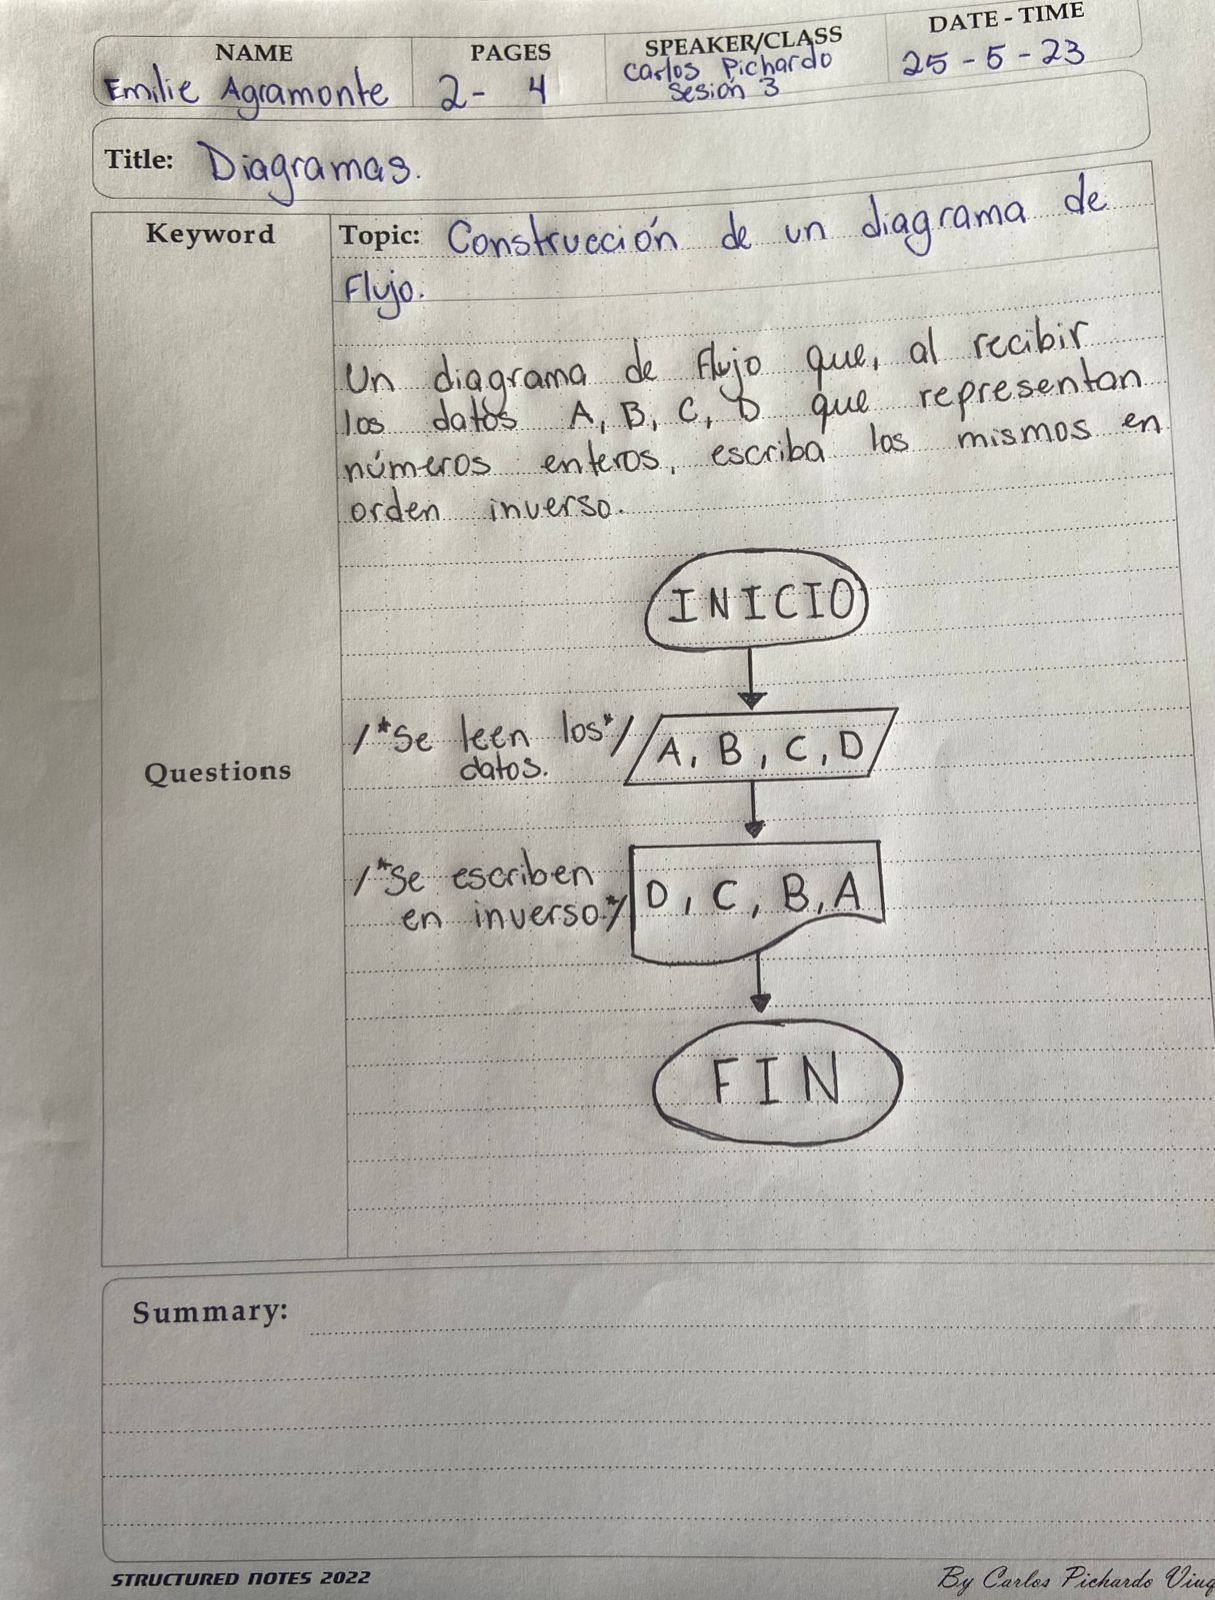 NAME
Emilie Agramonte
PAGES
2- 4
SPEAKER/CLASS
Carlos Pichardo
Sesión 3
DATE - TIME
25 - 5 - 23
Title: Diagramas.
Keyword
Topic: Construcción de un diagrama de
Flujo.
Un diagrama de Flujo que, al recibir
los datos A, B, C, D que representan
números enteros, escriba los mismos en
orden inverso.
INICIO
/*Se leen los*/
datos.
A, B, C, D
Questions
/*Se escriben
en inverso.*/
D, C, B, A
FIN
Summary:
STRUCTURED NOTES 2022
By Carlos Pichardo